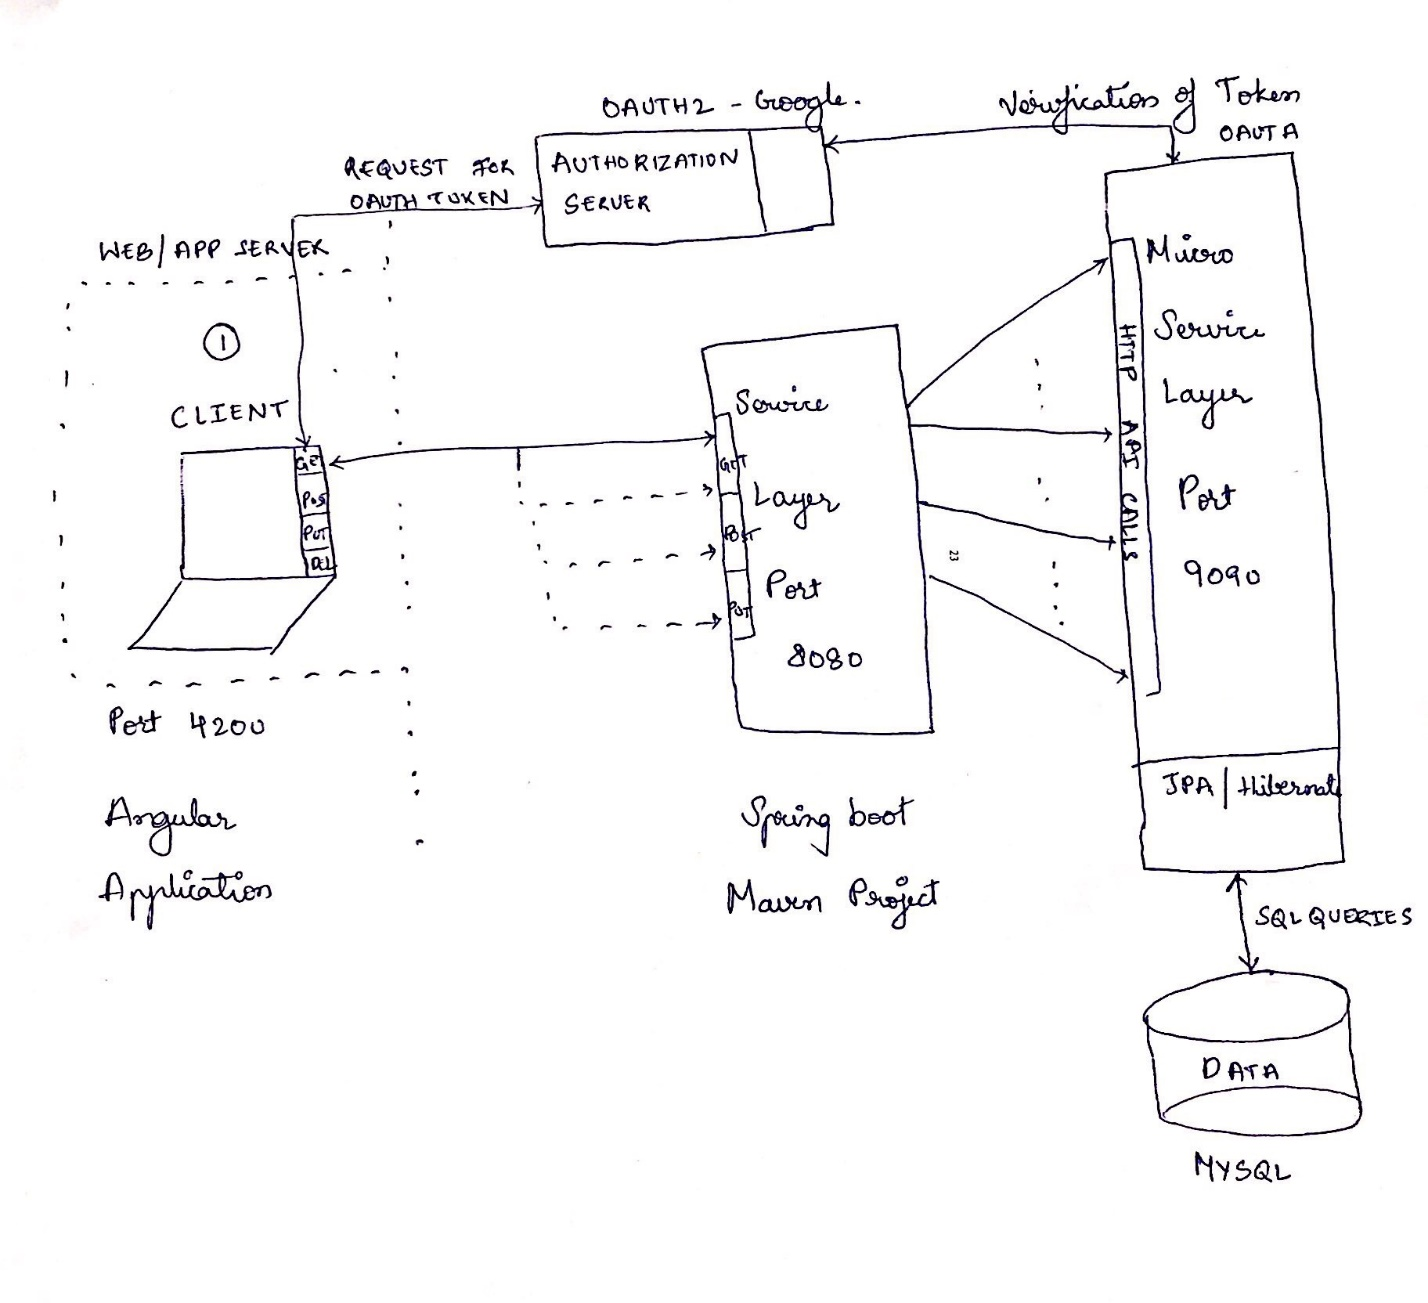 OAUTH2 - Google.
Verification of Token
OAUTA
REQUEST FOR
OAUTH TOKEN
AUTHORIZATION
SERVER
WEB/APP SERVER
1
CLIENT
GET
POS
PUT
DEL
Port 4200
Angular
Application
Service
Layer
Port
8080
GET
POST
PUT
Spring boot
Maven Project
23
Micro
Service
Layer
Port
9090
HTTP API CALLS
JPA/Hibernat
SQL QUERIES
DATA
MYSQL